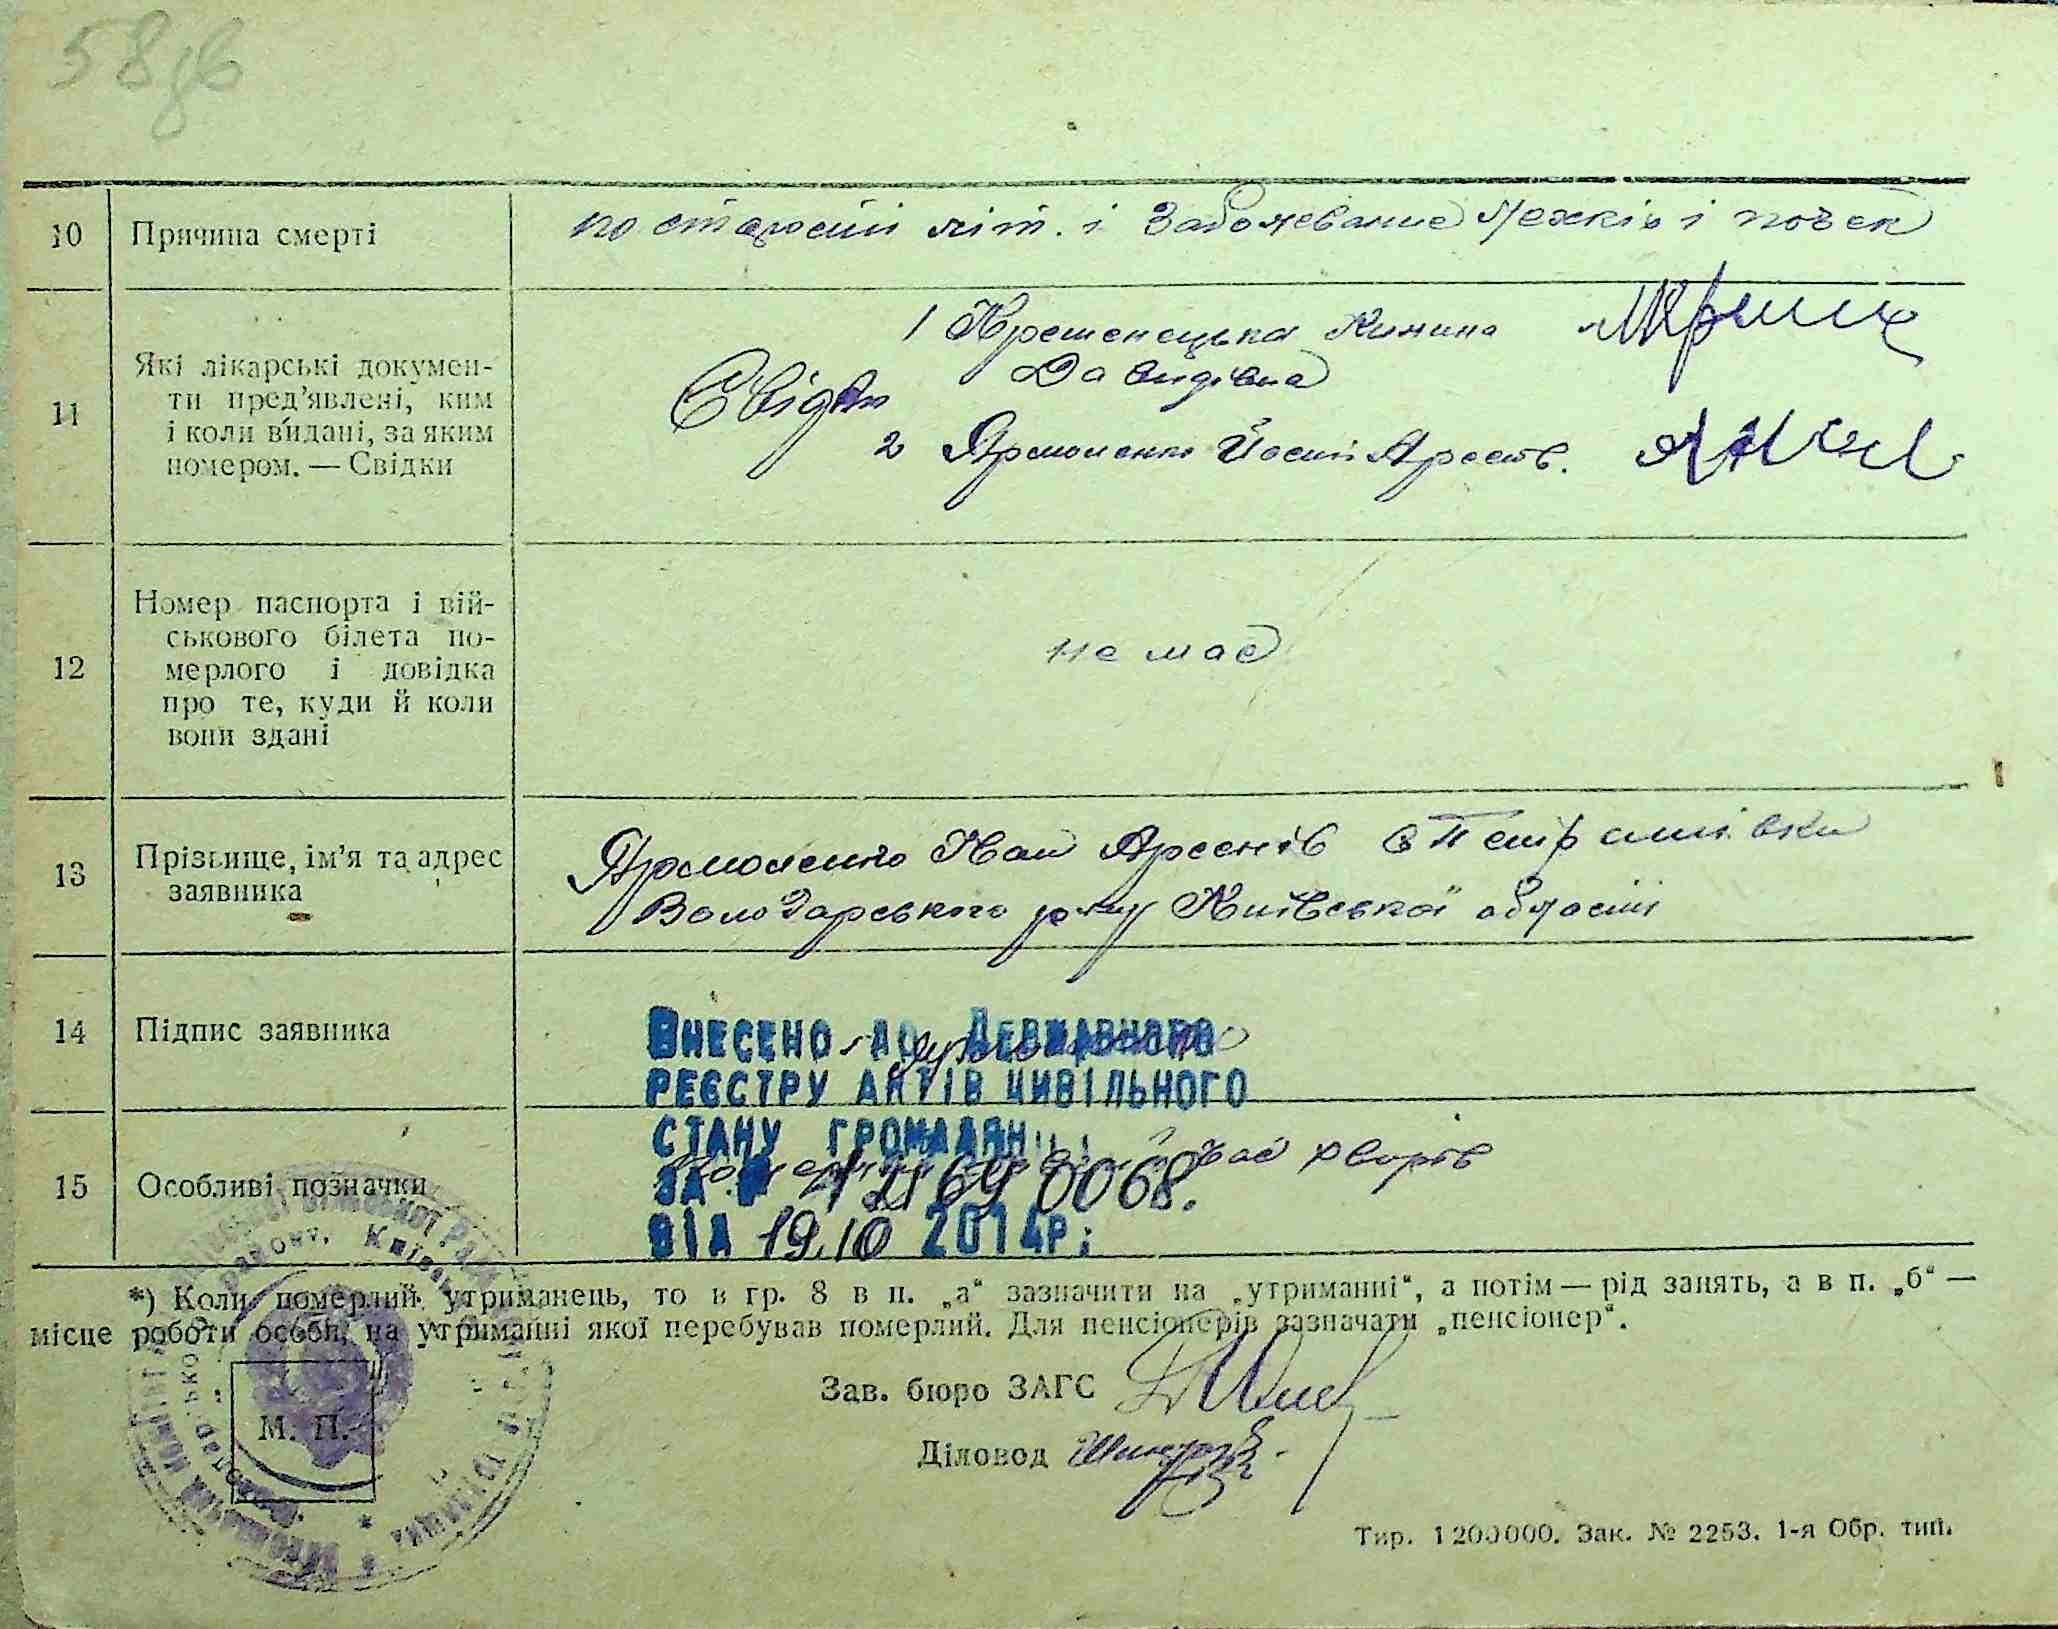 58
10 Причина смерті по старости літ. і Заболевание Лежків і почек
11 Які лікарські докумен-
ти пред'явлені, ким
і коли видані, за яким
номером. — Свідки
Свідки
1 Кременецька
Давидівна
2 Ярмоленко Йосип Арсенів.
12 Номер паспорта і вій-
ськового білета по-
мерлого і довідка
про те, куди й коли
вони здані
не має
13 Прізвище, ім'я та адрес
заявника
Ярмоленко Иван Арсенів с Петрашівки
Володарського р-ну Київської области
14 Підпис заявника
Внесено до Державного
реєстру актів цивільного
стану громадян
15 Особливі позначки
за № 1 2169 0068.
від 19.10 2014р.
*) Коли померлий утриманець, то в гр. 8 в п. „а“ зазначити на „утриманні“, а потім — рід занять, а в п. „б“ —
місце роботи особи, на утриманні якої перебував померлий. Для пенсіонерів зазначати „пенсіонер“.
Зав. бюро ЗАГС
М. П.
Діловод
Тир. 1200000. Зак. № 2253. 1-я Обр. тип.